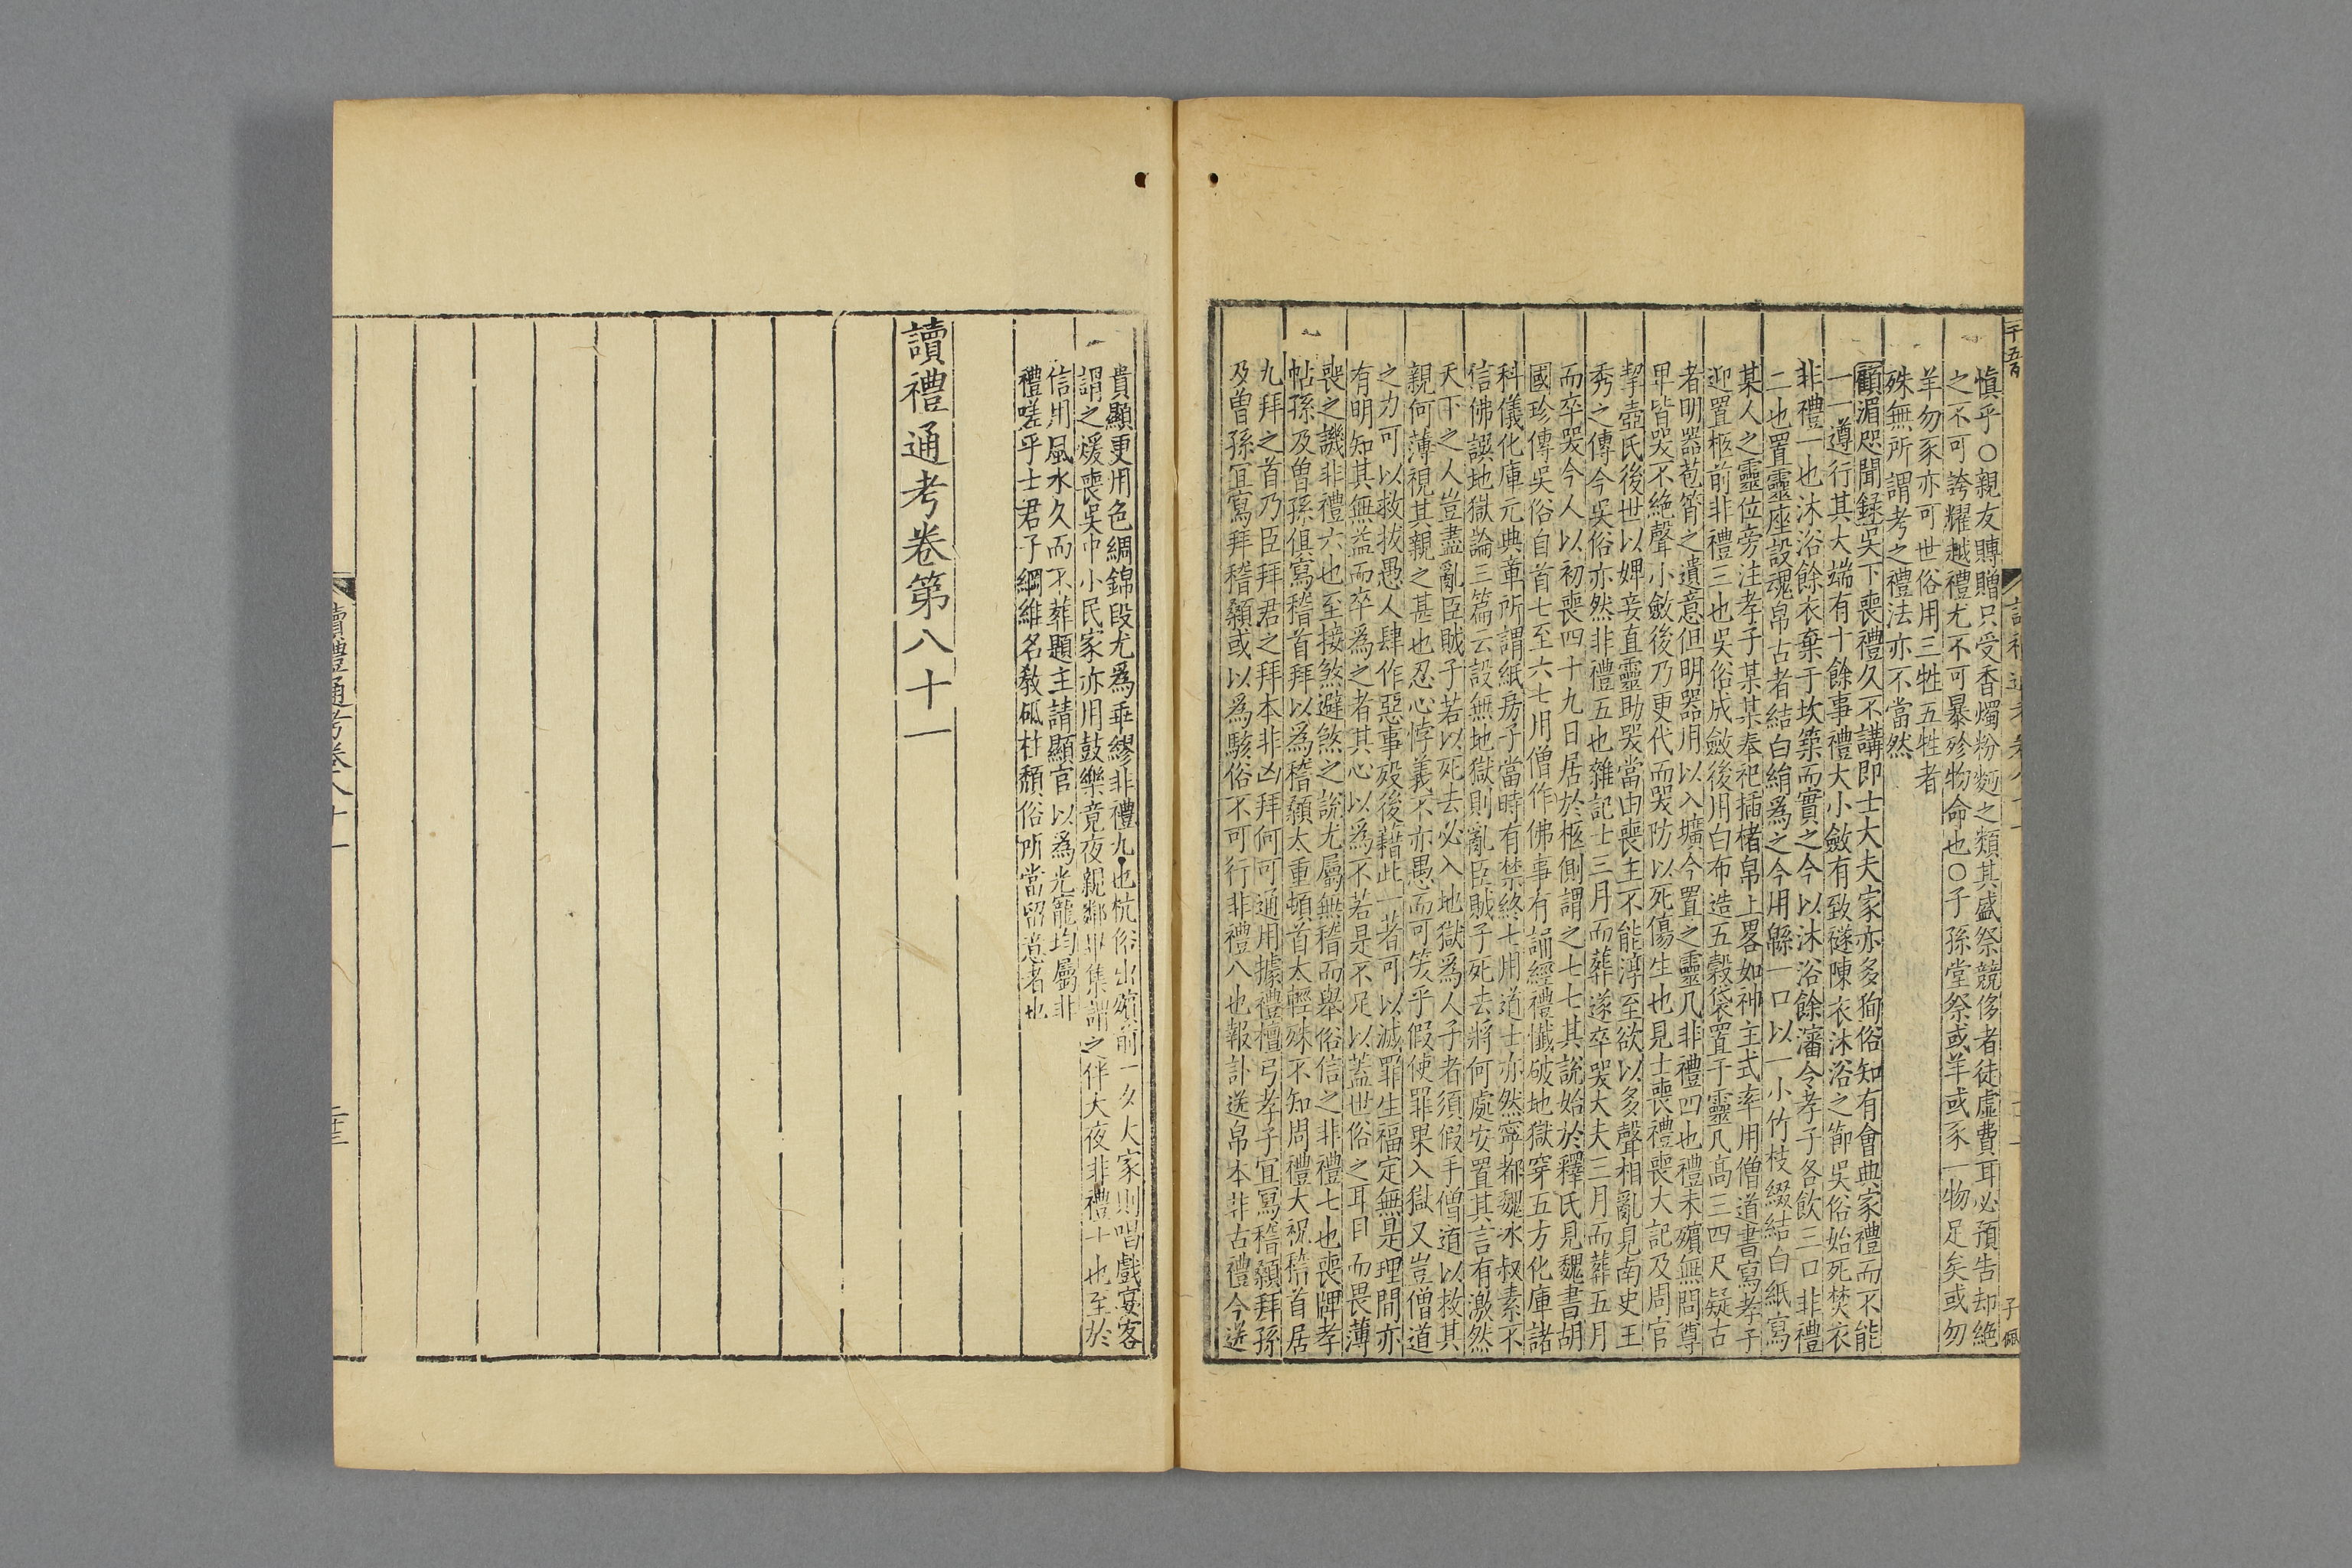 慎乎○親友賻贈只受香燭粉麪之類其盛祭競侈者徒虛費耳必預告却絶
之不可誇耀越禮尤不可暴殄物命也○子孫堂祭或羊或豕一物足矣或勿
羊勿豕亦可世俗用三牲五牲者
殊無所謂考之禮法亦不當然
顧湄咫聞録吳下喪禮久不講即士大夫家亦多狥俗知有會典家禮而不能
一一遵行其大端有十餘事禮大小斂有致襚陳衣沐浴之節吳俗始死焚衣
非禮一也沐浴餘衣棄于坎築而實之今以沐浴餘瀋令孝子各飲三口非禮
二也置靈座設魂帛古者結白絹爲之今用緜一口以一小竹枝綴結白紙寫
某人之靈位旁注孝子某某奉祀插楮帛上畧如神主式率用僧道書寫孝子
迎置柩前非禮三也吳俗成斂後用白布造五穀袋置于靈几高三四尺疑古
者明器苞筲之遺意但明器用以入壙今置之靈几非禮四也禮未殯無問尊
卑皆哭不絶聲小斂後乃更代而哭防以死傷生也見士喪禮喪大記及周官
挈壺氏後世以婢妾直靈助哭當由喪主不能淳至欲以多聲相亂見南史王
秀之傳今吳俗亦然非禮五也雜記士三月而葬遂卒哭大夫三月而葬五月
而卒哭今人以初喪四十九日居於柩側謂之七七其說始於釋氏見魏書胡
國珍傳吳俗自首七至六七用僧作佛事有誦經禮懺破地獄穿五方化庫諸
科儀化庫元典章所謂紙房子當時有禁終七用道士亦然寧都魏冰叔素不
信佛誤地獄論三篇云設無地獄則亂臣賊子死去將何處安置其言有激然
天下之人豈盡亂臣賊子若以死去必入地獄爲人子者須假手僧道以救其
親何薄視其親之甚也忍心悖義不亦愚而可笑乎假使罪果入獄又豈僧道
之力可以救拔愚人肆作惡事歿後藉此一者可以滅罪生福定無是理間亦
有明知其無益而卒爲之者其心以爲不若是不足以蓋世俗之耳目而畏薄
喪之譏非禮六也至接煞避煞之說尤屬無稽而舉俗信之非禮七也喪牌孝
帖孫及曾孫俱寫稽首拜以爲稽顙太重頓首太輕殊不知周禮大祝稽首居
九拜之首乃臣拜君之拜本非凶拜何可通用據禮檀弓孝子宜寫稽顙拜孫
及曾孫宜寫拜稽顙或以爲駭俗不可行非禮八也報訃送帛本非古禮今送
貴顯更用色綢錦段尤爲乖繆非禮九也杭俗出殯前一夕大家則唱戲宴客
謂之煖喪吳中小民家亦用鼓樂竟夜親鄰畢集謂之伴大夜非禮十也至於
信用風水久而不葬題主請顯官以爲光寵均屬非
禮嗟乎士君子綱維名教砥柱頹俗所當留意者也
讀禮通考卷第八十一
讀禮通考卷八十一
子佩